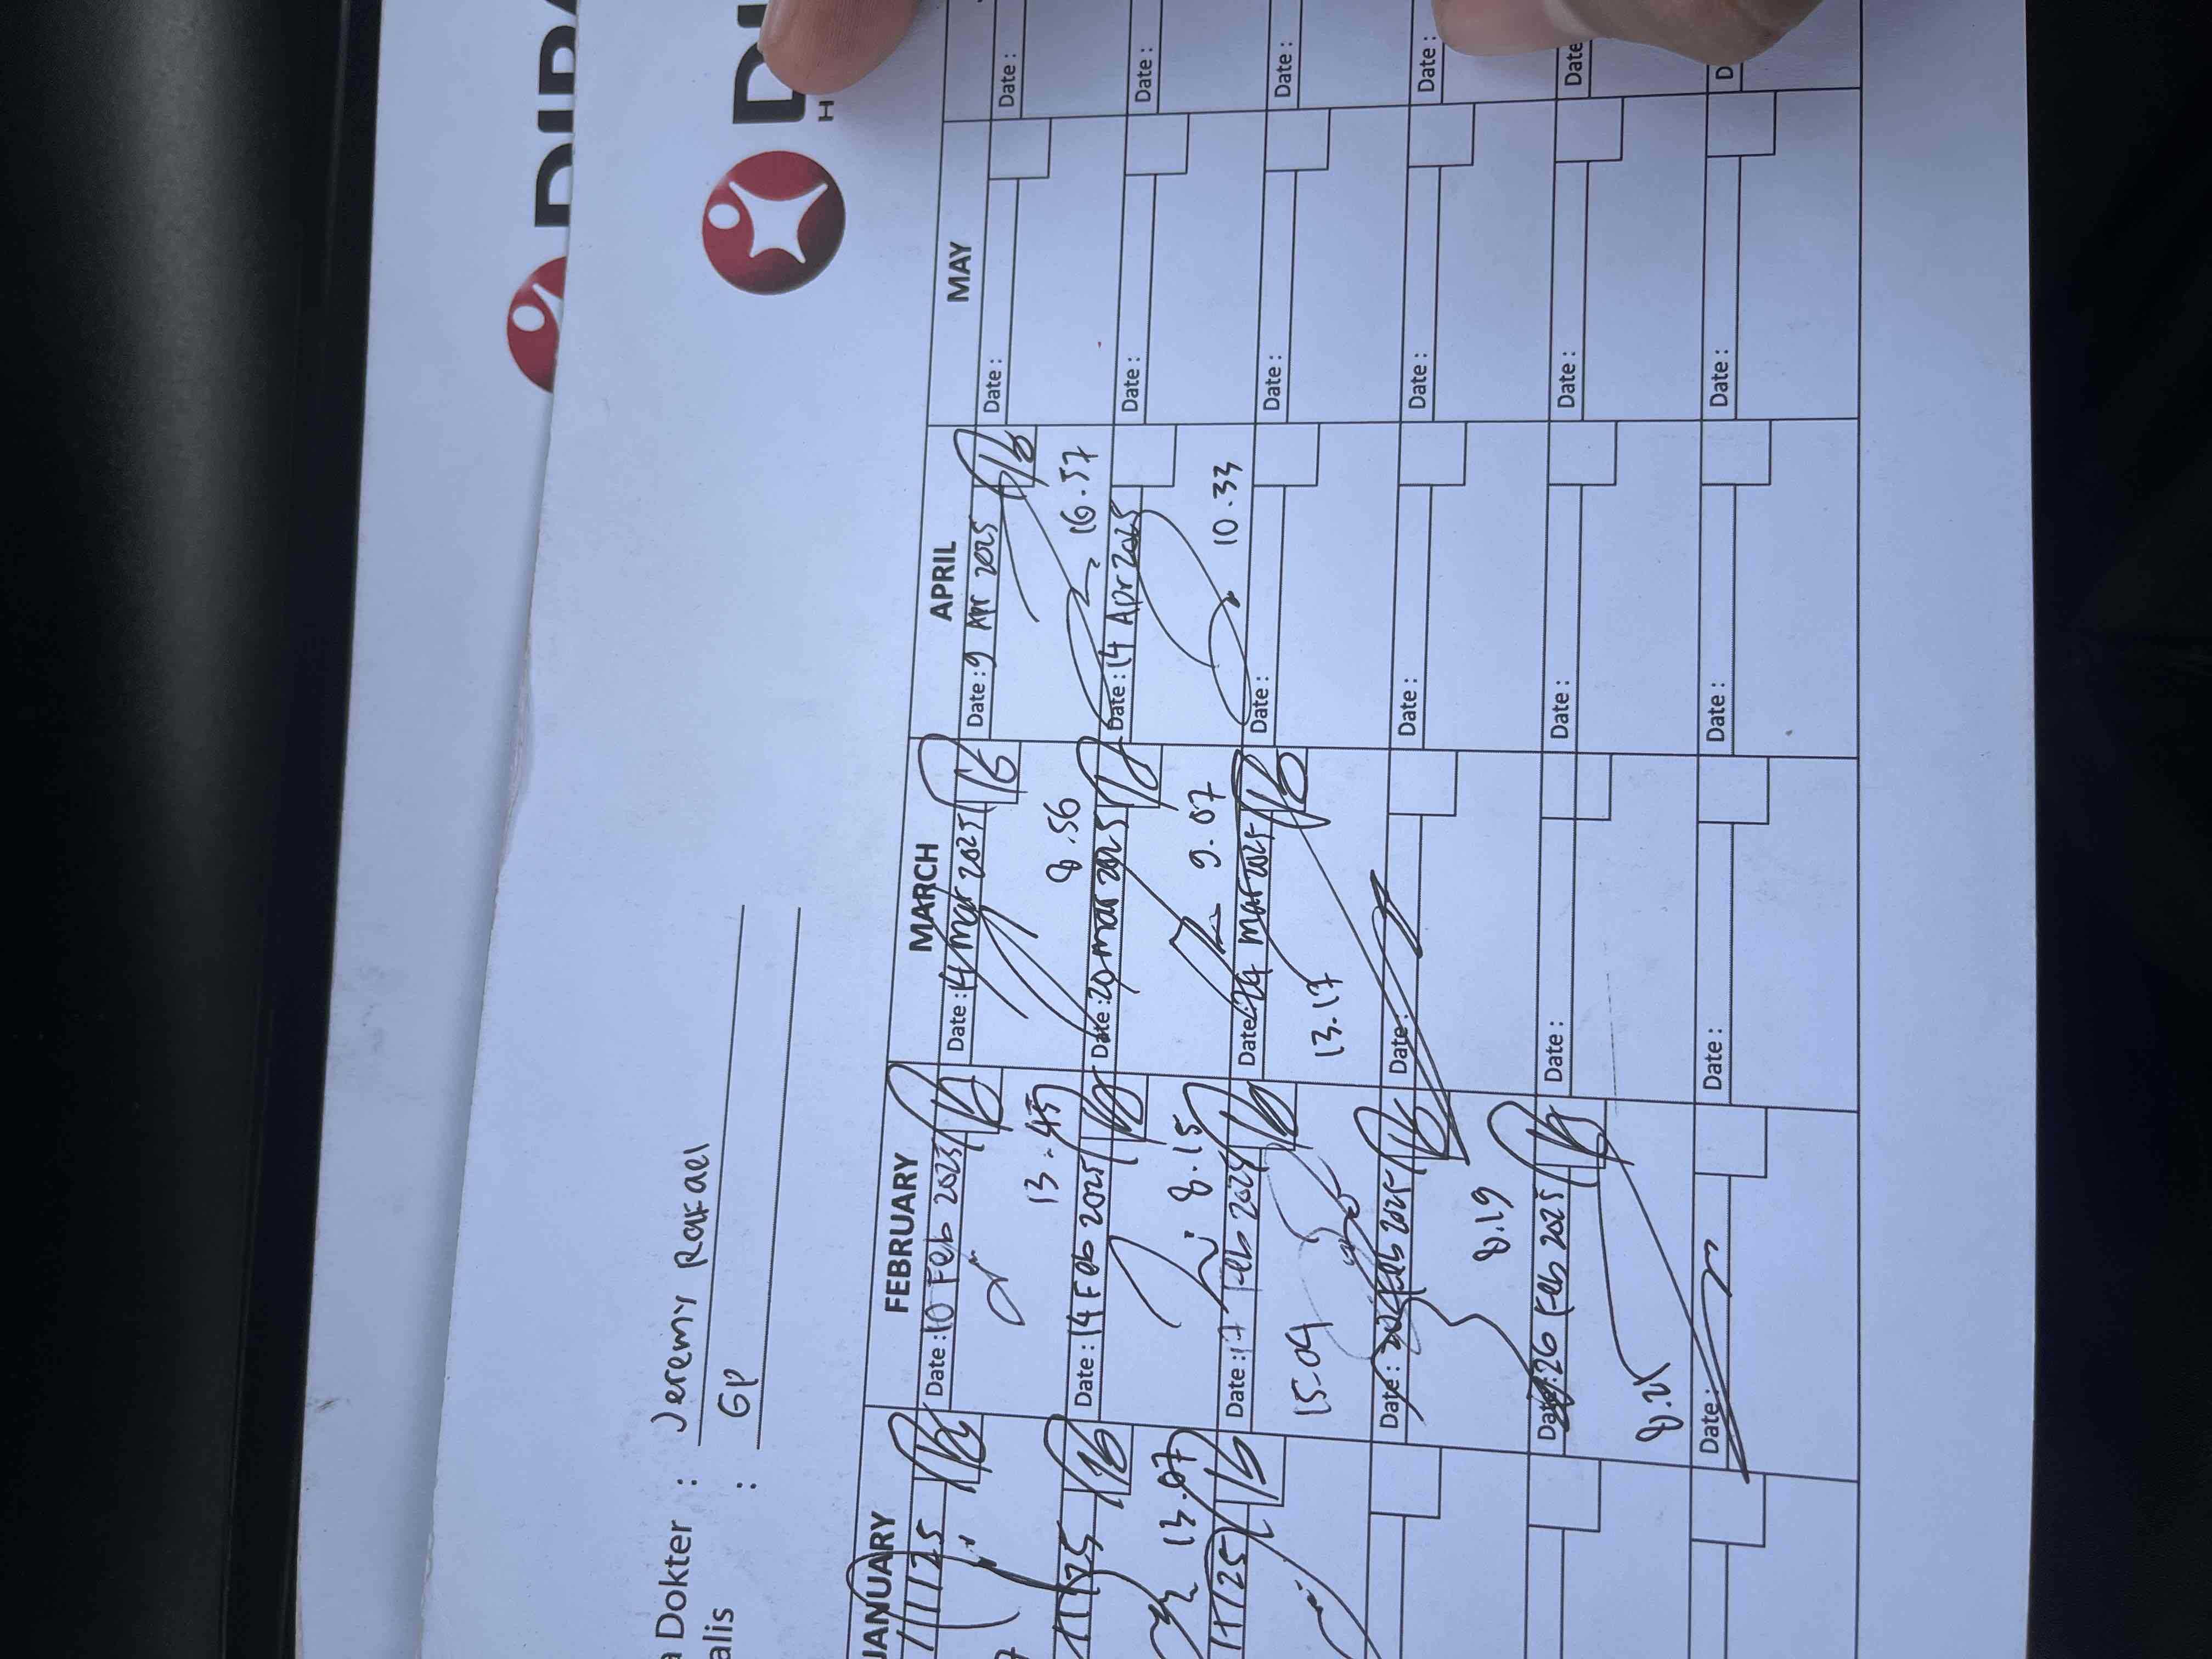 a Dokter : Jeremy Rafael
alis : GP
JANUARY FEBRUARY MARCH APRIL MAY
1/25 Date : 10 Feb 2025 Date : 14 Mar 2025 Date : 9 Apr 2025 Date : Date :
13.45 8.56 16.57
1/25 Date : 14 Feb 2025 Date : 20 mar 2025 Date : 14 Apr 2025 Date : Date :
13.07 8.15 9.07 10.33
1/25 Date : 17 Feb 2025 Date : 24 mar 2025 Date : Date : Date :
15.04 13.17
Date : Feb 2025 Date : Date : Date : Date :
8.19
Date : 26 Feb 2025 Date : Date : Date : Date
8.21
Date : Date : Date : Date : D